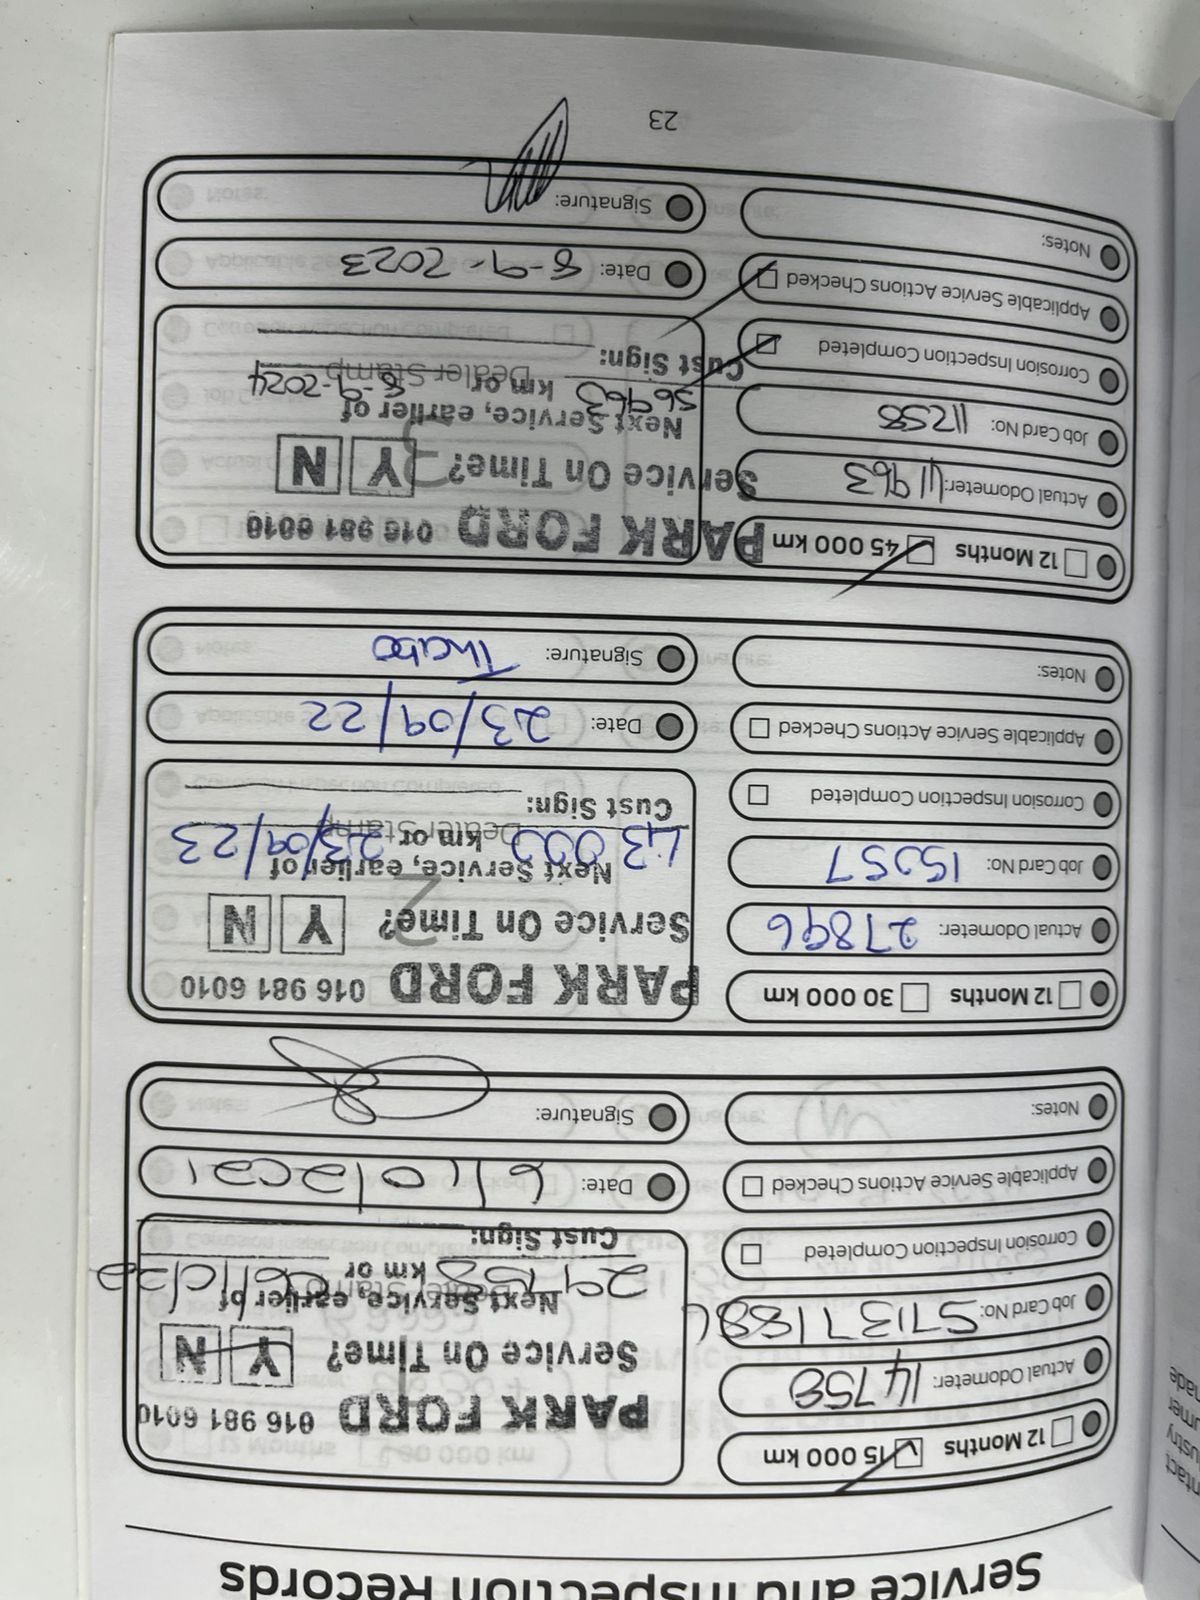 Service and Inspection Records
12 Months 15 000 km
Actual Odometer: 14758
Job Card No:
Corrosion Inspection Completed
Applicable Service Actions Checked
Notes:
PARK FORD 016 981 6010
Service On Time? Y N
Next Service, earlier of
29758 km or
Cust Sign:
Date: 6/10/2021
Signature:
12 Months 30 000 km
Actual Odometer: 27896
Job Card No: 15057
Corrosion Inspection Completed
Applicable Service Actions Checked
Notes:
PARK FORD 016 981 6010
Service On Time? Y N
2
Next Service, earlier of
43 000 km or 23/09/23
Dealer Stamp
Cust Sign:
Date: 23/09/22
Signature: Thabo
12 Months 45 000 km
Actual Odometer: 41963
Job Card No: 11258
Corrosion Inspection Completed
Applicable Service Actions Checked
Notes:
PARK FORD 016 981 6010
Service On Time? Y N
3
Next Service, earlier of
56963 km or 8-9-2024
Dealer Stamp
Cust Sign:
Date: 8-9-2023
Signature:
23